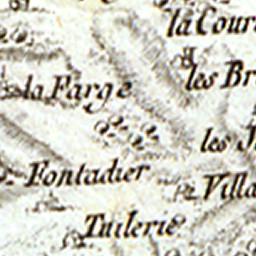 la Cour
les Br
la Farge
les
Fontadier
Villa
Tuilerie